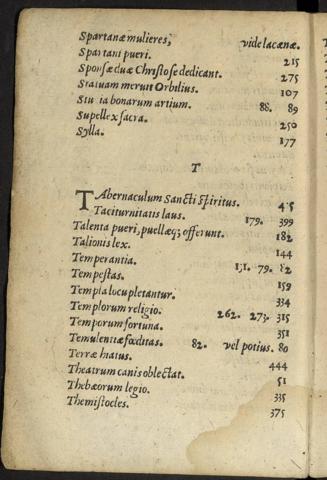 Spartanæ mulieres, vide lacænæ.
Spartani pueri. 215
Sponsæ duæ Christo se dedicant. 275
Statuam meruit Orbilius. 107
Stu ta bonarum artium. 88. 89
Supellex sacra. 250
Sylla. 177
T
TAbernaculum Sancti spiritus. 45
Taciturnitatis laus. 179. 399
Talenta pueri, puellæq; offerunt. 182
Talionis lex. 144
Temperantia. 131. 79. 82
Tempestas. 159
Templa locupletantur. 334
Templorum religio. 262. 273. 315
Temporum fortuna. 351
Temulentiæ fœditas. 82. vel potius. 80
Terræ hiatus. 444
Theatrum canis oblectat. 51
Thebæorum legio. 335
Themistocles. 375